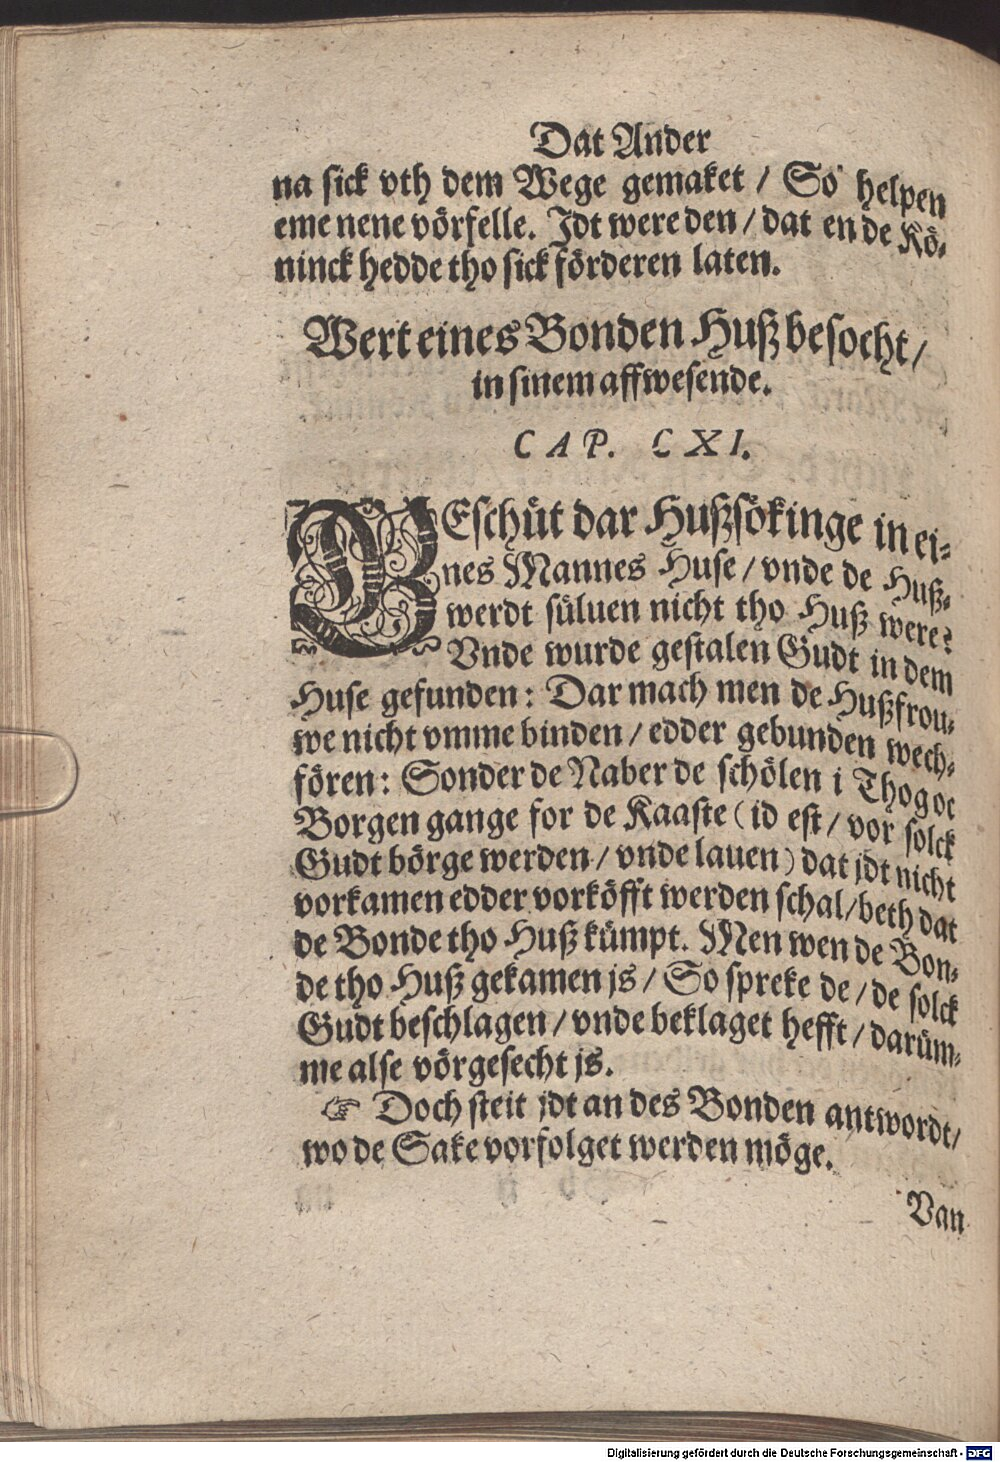 Dat Ander
na sick vth dem Wege gemaket / So helpen
eme nene vörfelle. Jdt were den / dat en de Kö-
ninck hedde tho sick förderen laten.
Wert eines Bonden Huß besocht /
in sinem affwesende.
CAP. CXI.
BEschüt dar Hußsökinge in ei-
nes Mannes Huse / vnde de Huß-
werdt süluen nicht tho Huß were?
Vnde wurde gestalen Gudt in dem
Huse gefunden: Dar mach men de Hußfrou-
we nicht vmme binden / edder gebunden wech-
fören: Sonder de Naber de schölen i Thogoc
Borgen gange for de Kaaste (id est / vor solck
Gudt börge werden / vnde lauen) dat jdt nicht
vorkamen edder vorköfft werden schal / beth dat
de Bonde tho Huß kümpt. Men wen de Bon-
de tho Huß gekamen js / So spreke de / de solck
Gudt beschlagen / vnde beklaget hefft / darüm-
me alse vörgesecht js.
☞ Doch steit jdt an des Bonden antwordt /
wo de Sake vorfolget werden möge.
Van
Digitalisierung gefördert durch die Deutsche Forschungsgemeinschaft - DFG